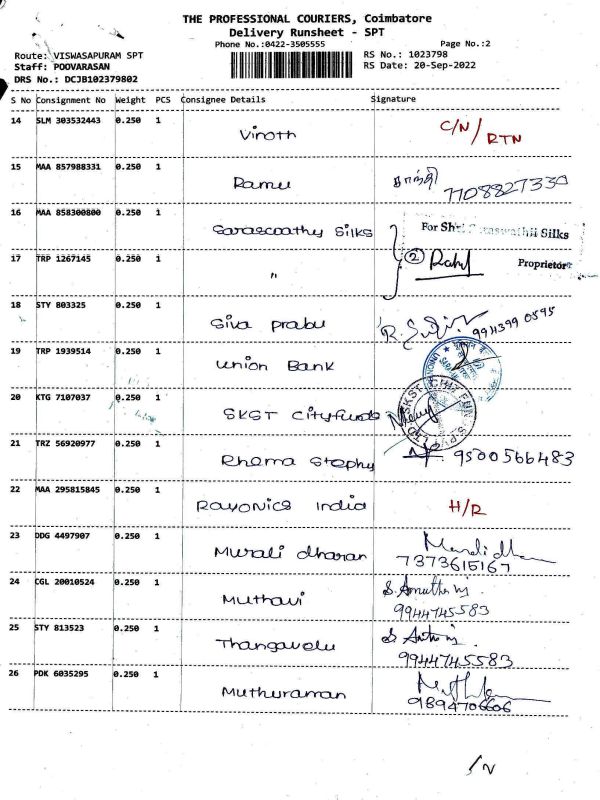 THE PROFESSIONAL COURIERS, Coimbatore
Delivery Runsheet - SPT
Phone No.:0422-3505555 Page No.:2
Route: VISWASAPURAM SPT RS No.: 1023798
Staff: POOVARASAN RS Date: 20-Sep-2022
DRS No.: DCJB102379802
S No Consignment No Weight PCS Consignee Details Signature
14 SLM 303532443 0.250 1 Vinoth C/N/RTN
15 MAA 857988331 0.250 1 Ramu சாந்தி
7708827330
16 MAA 858300800 0.250 1 Saraswathy Silks For Shri Silks
17 TRP 1267145 0.250 1 " 2 Rahul Proprietor
18 STY 803325 0.250 1 Siva Prabu 994399 0595
19 TRP 1939514 0.250 1 Union Bank
20 KTG 7107037 0.250 1 SKST Cityfunds
21 TRZ 56920977 0.250 1 Rhema Stephy 9500566483
22 MAA 295815845 0.250 1 Rayonics India H/R
23 DDG 4497907 0.250 1 Murali dharan
7373615167
24 CGL 20010524 0.250 1 Muthavi
9944745583
25 STY 813523 0.250 1 Thangavelu
9944745583
26 PDK 6035295 0.250 1 Muthuraman
9894706606